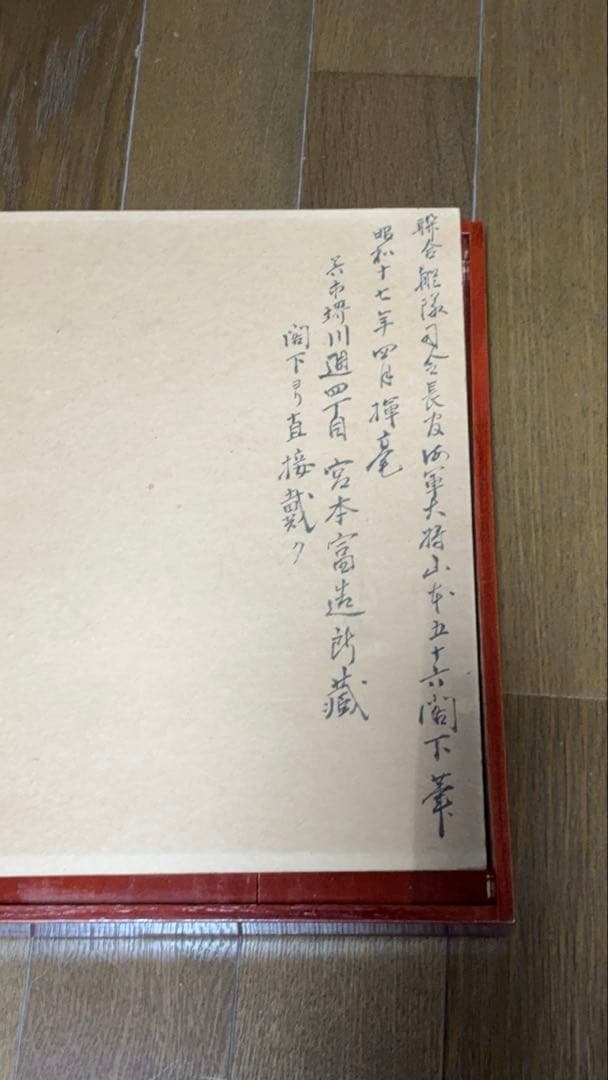 聯合艦隊司令長官海軍大将山本五十六閣下筆
昭和十七年四月揮毫
呉市堺川通四丁目 宮本富造所蔵
閣下ヨリ直接戴ク